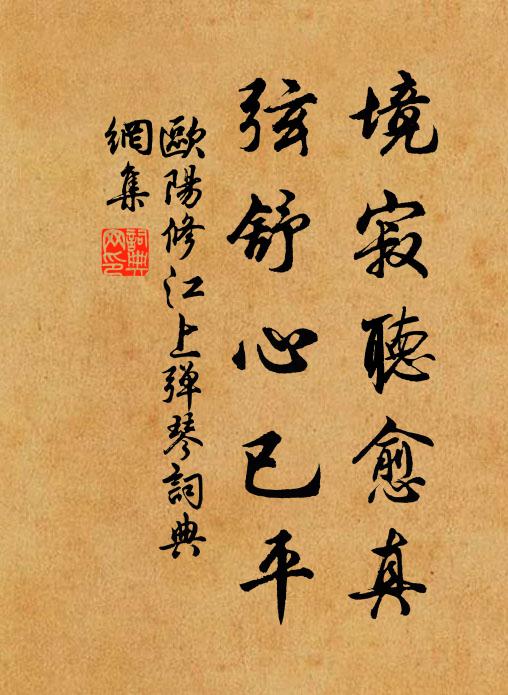 境寂聽愈真
弦舒心已平
歐陽修江上彈琴詞典
網集
詞典網印